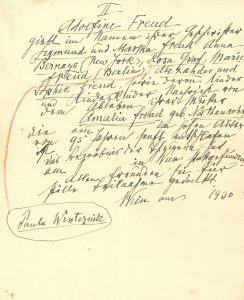 II
Adolfine Freud
giebt im Namen ihrer Geschwister
Sigmund und Martha Freud Anna
Bernays (New York), Rosa Graf Marie
Freud (Berlin), Alexander und
Sophie Freud, sowie deren Kinder
und Kindeskinder Nachricht von
dem Ableben ihrer Mutter
Amalia Freud geb. Nathansohn
die im hohen Alter
von 95 Jahren sanft entschlafen
ist das Begräbnis der
am in Wien stattgefunden
Allen Freunden sei für
stille Teilnahme gedankt
Wien am 1930
Paula